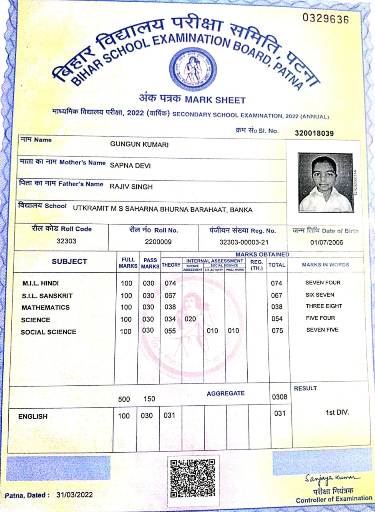 0329636
बिहार विद्यालय परीक्षा समिति, पटना
BIHAR SCHOOL EXAMINATION BOARD, PATNA
अंक पत्रक MARK SHEET
माध्यमिक विद्यालय परीक्षा, 2022 (वार्षिक) SECONDARY SCHOOL EXAMINATION, 2022 (ANNUAL)
क्रम सं० Sl. No. 320018039
नाम Name GUNGUN KUMARI
माता का नाम Mother's Name SAPNA DEVI
पिता का नाम Father's Name RAJIV SINGH
विद्यालय School UTKRAMIT M S SAHARNA BHURNA BARAHAAT, BANKA
रौल कोड Roll Code रौल नं० Roll No. पंजीयन संख्या Reg. No. जन्म तिथि Date of Birth
32303 2200009 32303-00003-21 01/07/2006
SUBJECT FULL MARKS PASS MARKS THEORY INTERNAL ASSESSMENT REG. (TH.) TOTAL MARKS IN WORDS
MARKS OBTAINED
M.I.L. HINDI 100 030 074 074 SEVEN FOUR
S.I.L. SANSKRIT 100 030 067 067 SIX SEVEN
MATHEMATICS 100 030 038 038 THREE EIGHT
SCIENCE 100 030 034 020 054 FIVE FOUR
SOCIAL SCIENCE 100 030 055 010 010 075 SEVEN FIVE
500 150 AGGREGATE 0308 RESULT
ENGLISH 100 030 031 031 1st DIV.
Sanjay Kumar
परीक्षा नियंत्रक
Patna, Dated : 31/03/2022 Controller of Examination